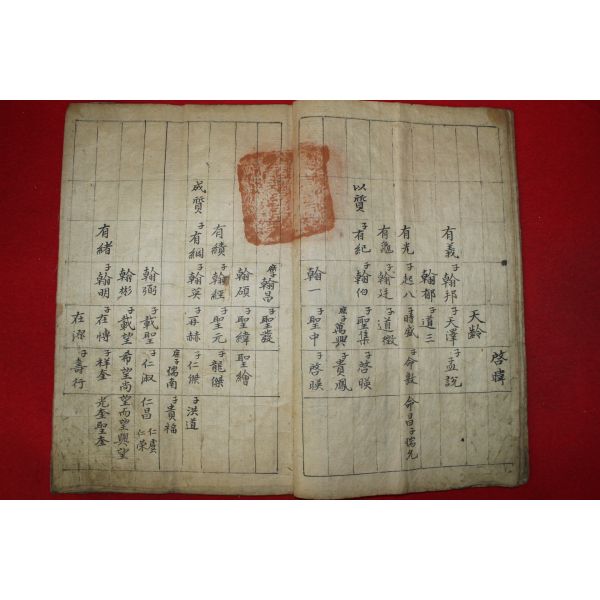 啓暐
天齡
有義 子翰邦 子天澤 子孟說
翰郁 子道三
有光 子起八 子時盛 子命敎 命昌 子儒允
有龜 子翰廷 子道徵
以贊 子有紀 子翰伯 子聖集 子啓暎
庶子萬興 子貴鳳
翰一 子聖中 子啓暎
庶子翰昌 子聖發
翰碩 子聖緯 聖繪
有績 子翰經 子聖元 子龍傑
成贊 子有綱 子翰英 子再赫 子仁傑 子洪道
庶子儒南 子貴福
翰弼 子載聖 子仁淑 仁昌 仁虞 仁榮
翰彬 子載望 希望 尚望 而望 興望
有緒 子翰明 子在博 子祥奎 光奎 聖奎
在深 子壽行